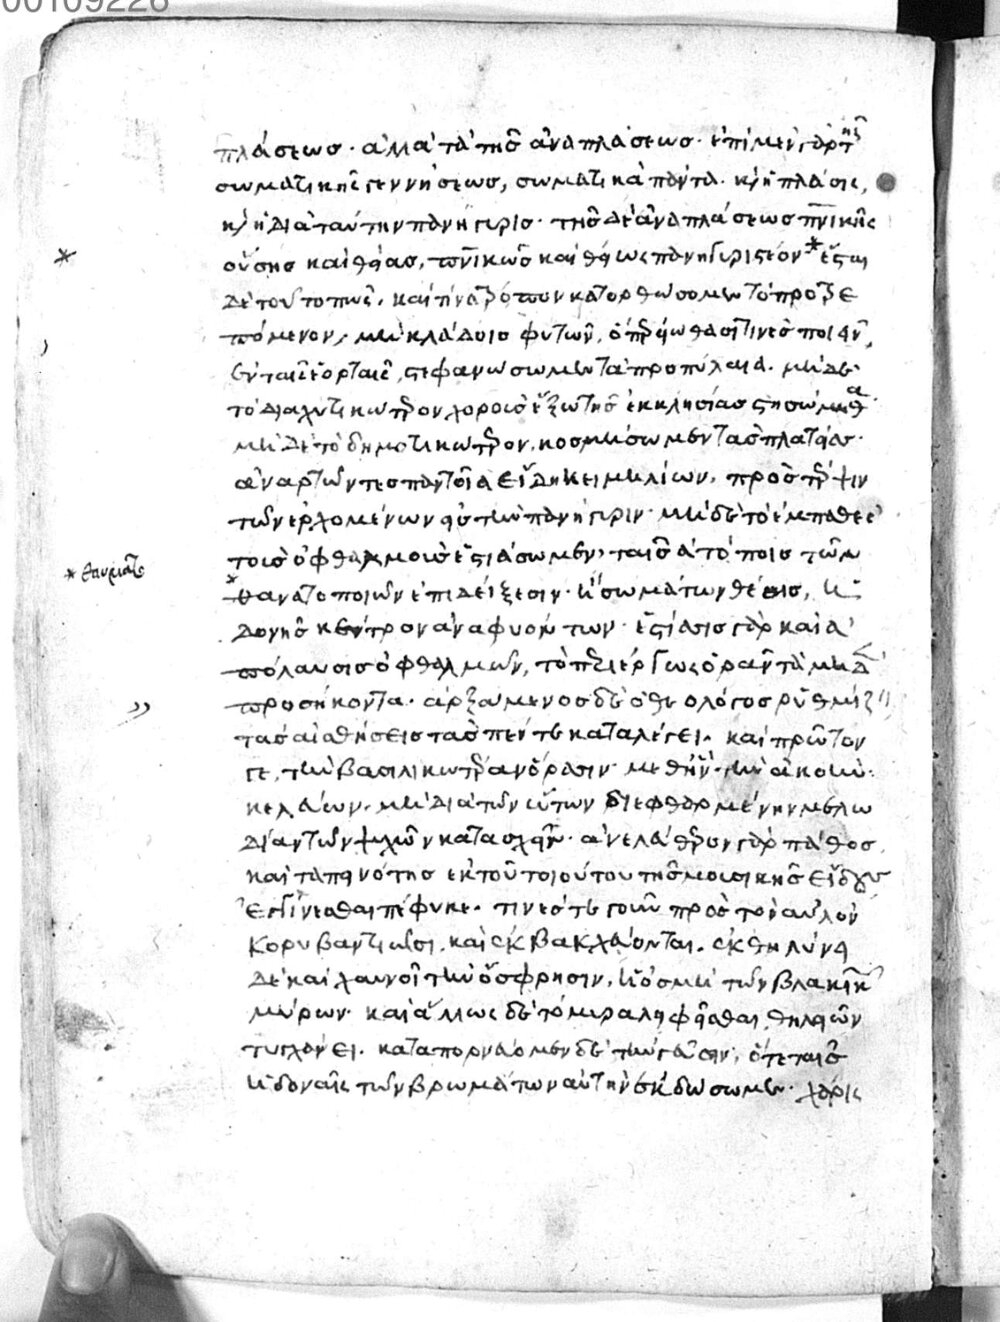 00109226
πλάσεως· ἀλλὰ τὰ τῆς ἀναπλάσεως· ἐπὶ μὲν γὰρ τῆς
σωματικῆς γεννήσεως, σωματικὰ πάντα. κ(αὶ) ἡ πλάσις,
κ(αὶ) ἡ διὰ ταύτην πανήγυρις· τῆς δὲ ἀναπλάσεως πνικῆς
οὔσης καὶ θείας, πνικῶς καὶ θείως πανηγυριστέον* ἔσται
δὲ τοῦτο πῶς, καὶ τίνα τρόπον κατορθώσομεν τὸ προτρε
πόμενον, μὴ κλάδοις φυτῶν, ὅπερ εἰώθασί τινες ποιεῖν,
ἐν ταῖς ἑορταῖς, στεφανώσωμεν τὰ προπύλαια. μηδὲ
τὸ διαχυτικώτερον, χοροὺς ἔξω τῆς ἐκκλησίας στησώμεθα
μηδὲ τὸ δημοτικώτερον, κοσμήσωμεν τὰς πλατείας·
ἀναρτῶντες παντοῖα εἴδη κειμηλίων, πρὸς τέρψιν
τῶν ἐρχομένων εἰς τὴν πανήγυριν· μηδὲ τὸ ἐμπαθὲς
τοὺς ὀφθαλμοὺς ἑστιάσωμεν, ταῖς ἀτόποις τῶν
* θαυματο
θανατοποιῶν ἐπιδείξεσιν· ἢ σωμάτων θέαις, ἡ
δονῆς κέντρον ἀναφυόντων· ἑστίασις γὰρ καὶ ἀ
πόλαυσις ὀφθαλμῶν, τὸ περιέργως ὁρᾶν τὰ μὴ
προσήκοντα. ἀρξάμενος δὲ ὁ θεολόγος ῥυθμίζειν
τὰς αἰσθήσεις τὰς πέντε καταλέγει. καὶ πρῶτόν
γε, τὴν βασιλικωτέραν ὅρασιν· μεθ' ἣν, τὴν ἀκοὴν.
κελεύων, μὴ διὰ τῶν ὤτων διεφθαρμένην μελῳ
δίαν τῶν ψυχῶν κατασχεῖν· ἀνελεύθερον γὰρ πάθος
καὶ ταπεινότης ἐκ τοῦ τοιούτου τῆς μουσικῆς εἴδους
ἐγγίνεσθαι πέφυκε. τινές τε γοῦν πρὸς τὸν αὐλὸν
κορυβαντιῶσι, καὶ ἐκβακχεύονται. ἐκθηλύνει
δὲ καὶ χαυνοῖ τὴν ὄσφρησιν, ἡ ὀσμὴ τῶν βλακικῶν
μύρων· καὶ ἄλλως δὲ τὸ μυραλειφεῖσθαι, θηλειῶν
τυγχάνει. καταπορνεύομεν δὲ τὴν γεῦσιν, ὅτε ταῖς
ἡδοναῖς τῶν βρωμάτων αὐτὴν ἐκδώσωμεν. χάρις